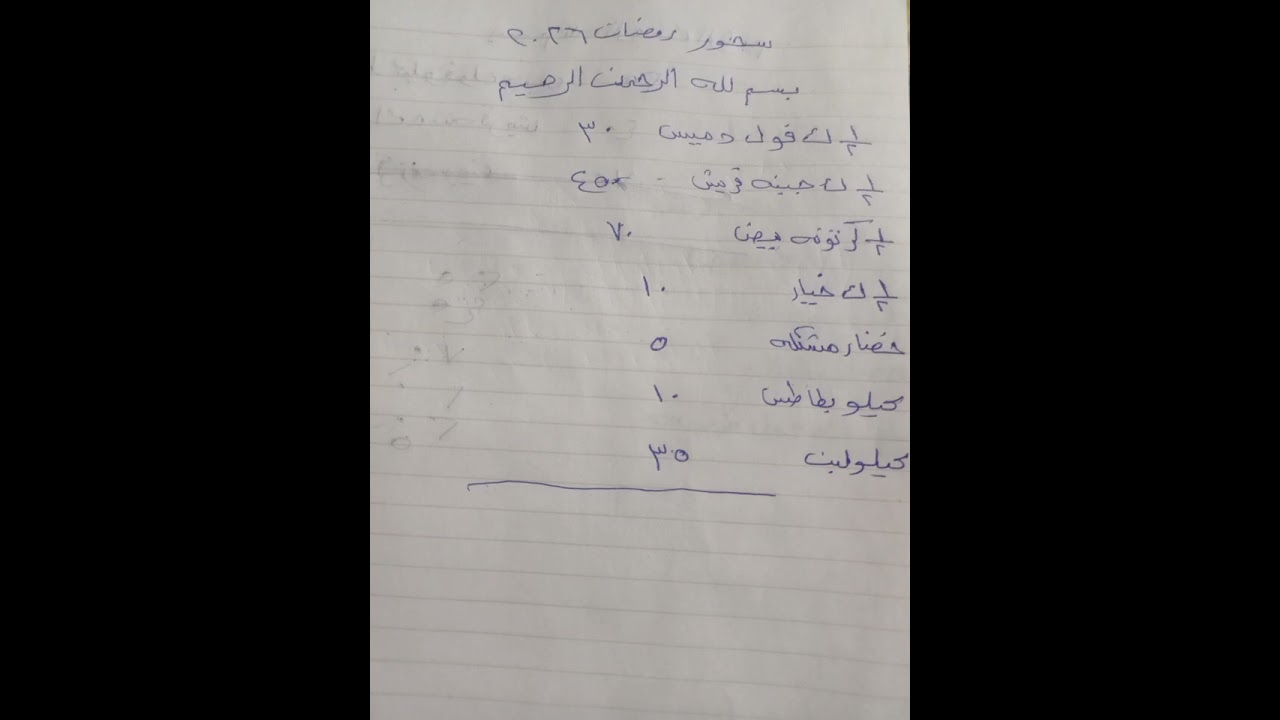 سحور رمضان ٢٠٢٦
بسم لله الرحمن الرحيم
½ ك فول دميس ٣٠
½ ك جبنه قريش - ٤٥
½ كرتونه بيض ٧٠
½ ك خيار ١٠
خضار مشكله ٥
كيلو بطاطس ١٠
كيلو لبن ٣٥